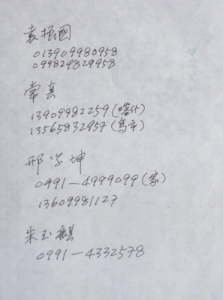 袁振国
013909980958
09982982958
常真
13909982259(喀什)
13565832957(乌市)
邢学坤
0991-4999099(家)
13609981127
朱玉麒
0991-4332578